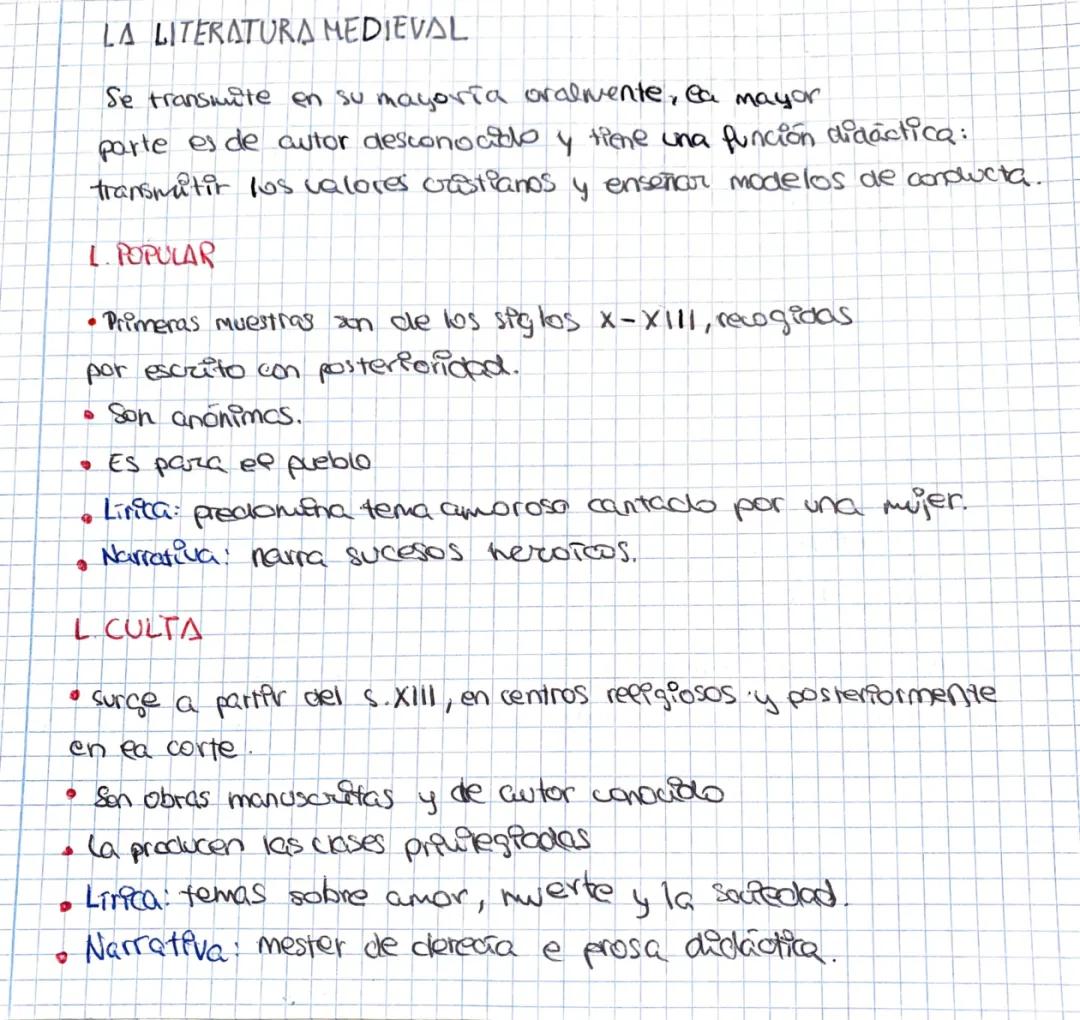 LA LITERATURA MEDIEVAL
Se transmite en su mayoría oralmente, la mayor
parte es de autor desconocido y tiene una función didáctica:
transmitir los valores cristianos y enseñar modelos de conducta.
L. POPULAR
• Primeras muestras son de los siglos X-XIII, recogidas
por escrito con posterioridad.
• Son anónimas.
• Es para el pueblo
• Lírica: predomina tema amoroso cantado por una mujer.
• Narrativa: narra sucesos heroicos.
L. CULTA
• surge a partir del s. XIII, en centros religiosos y posteriormente
en la corte.
• Son obras manuscritas y de autor conocido
• La producen las clases privilegiadas
• Lírica: temas sobre amor, muerte y la sociedad.
• Narrativa: mester de clerecía e prosa didáctica.